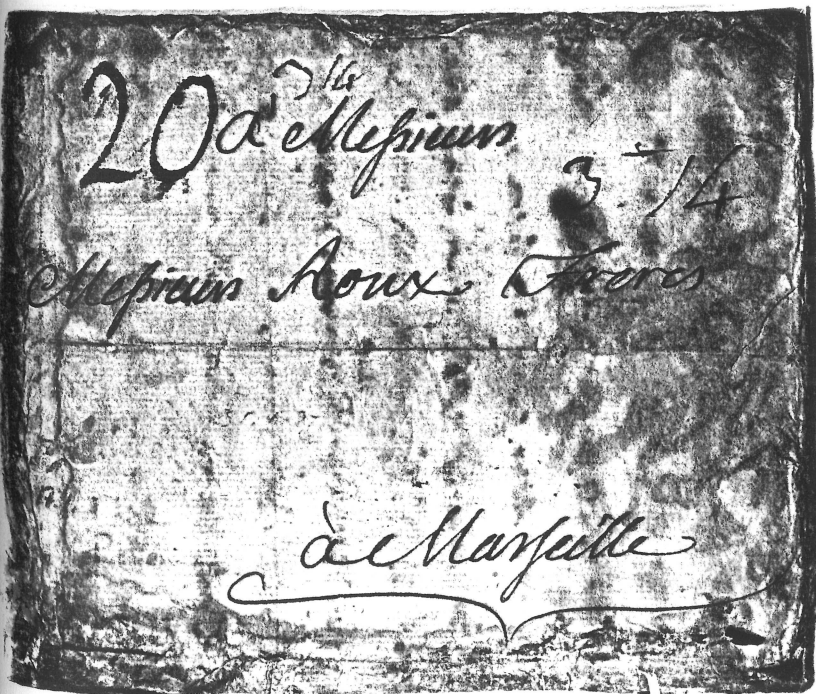 3 14
20 à Messieurs
3. 14
Messieurs Roux Freres
à Marseille